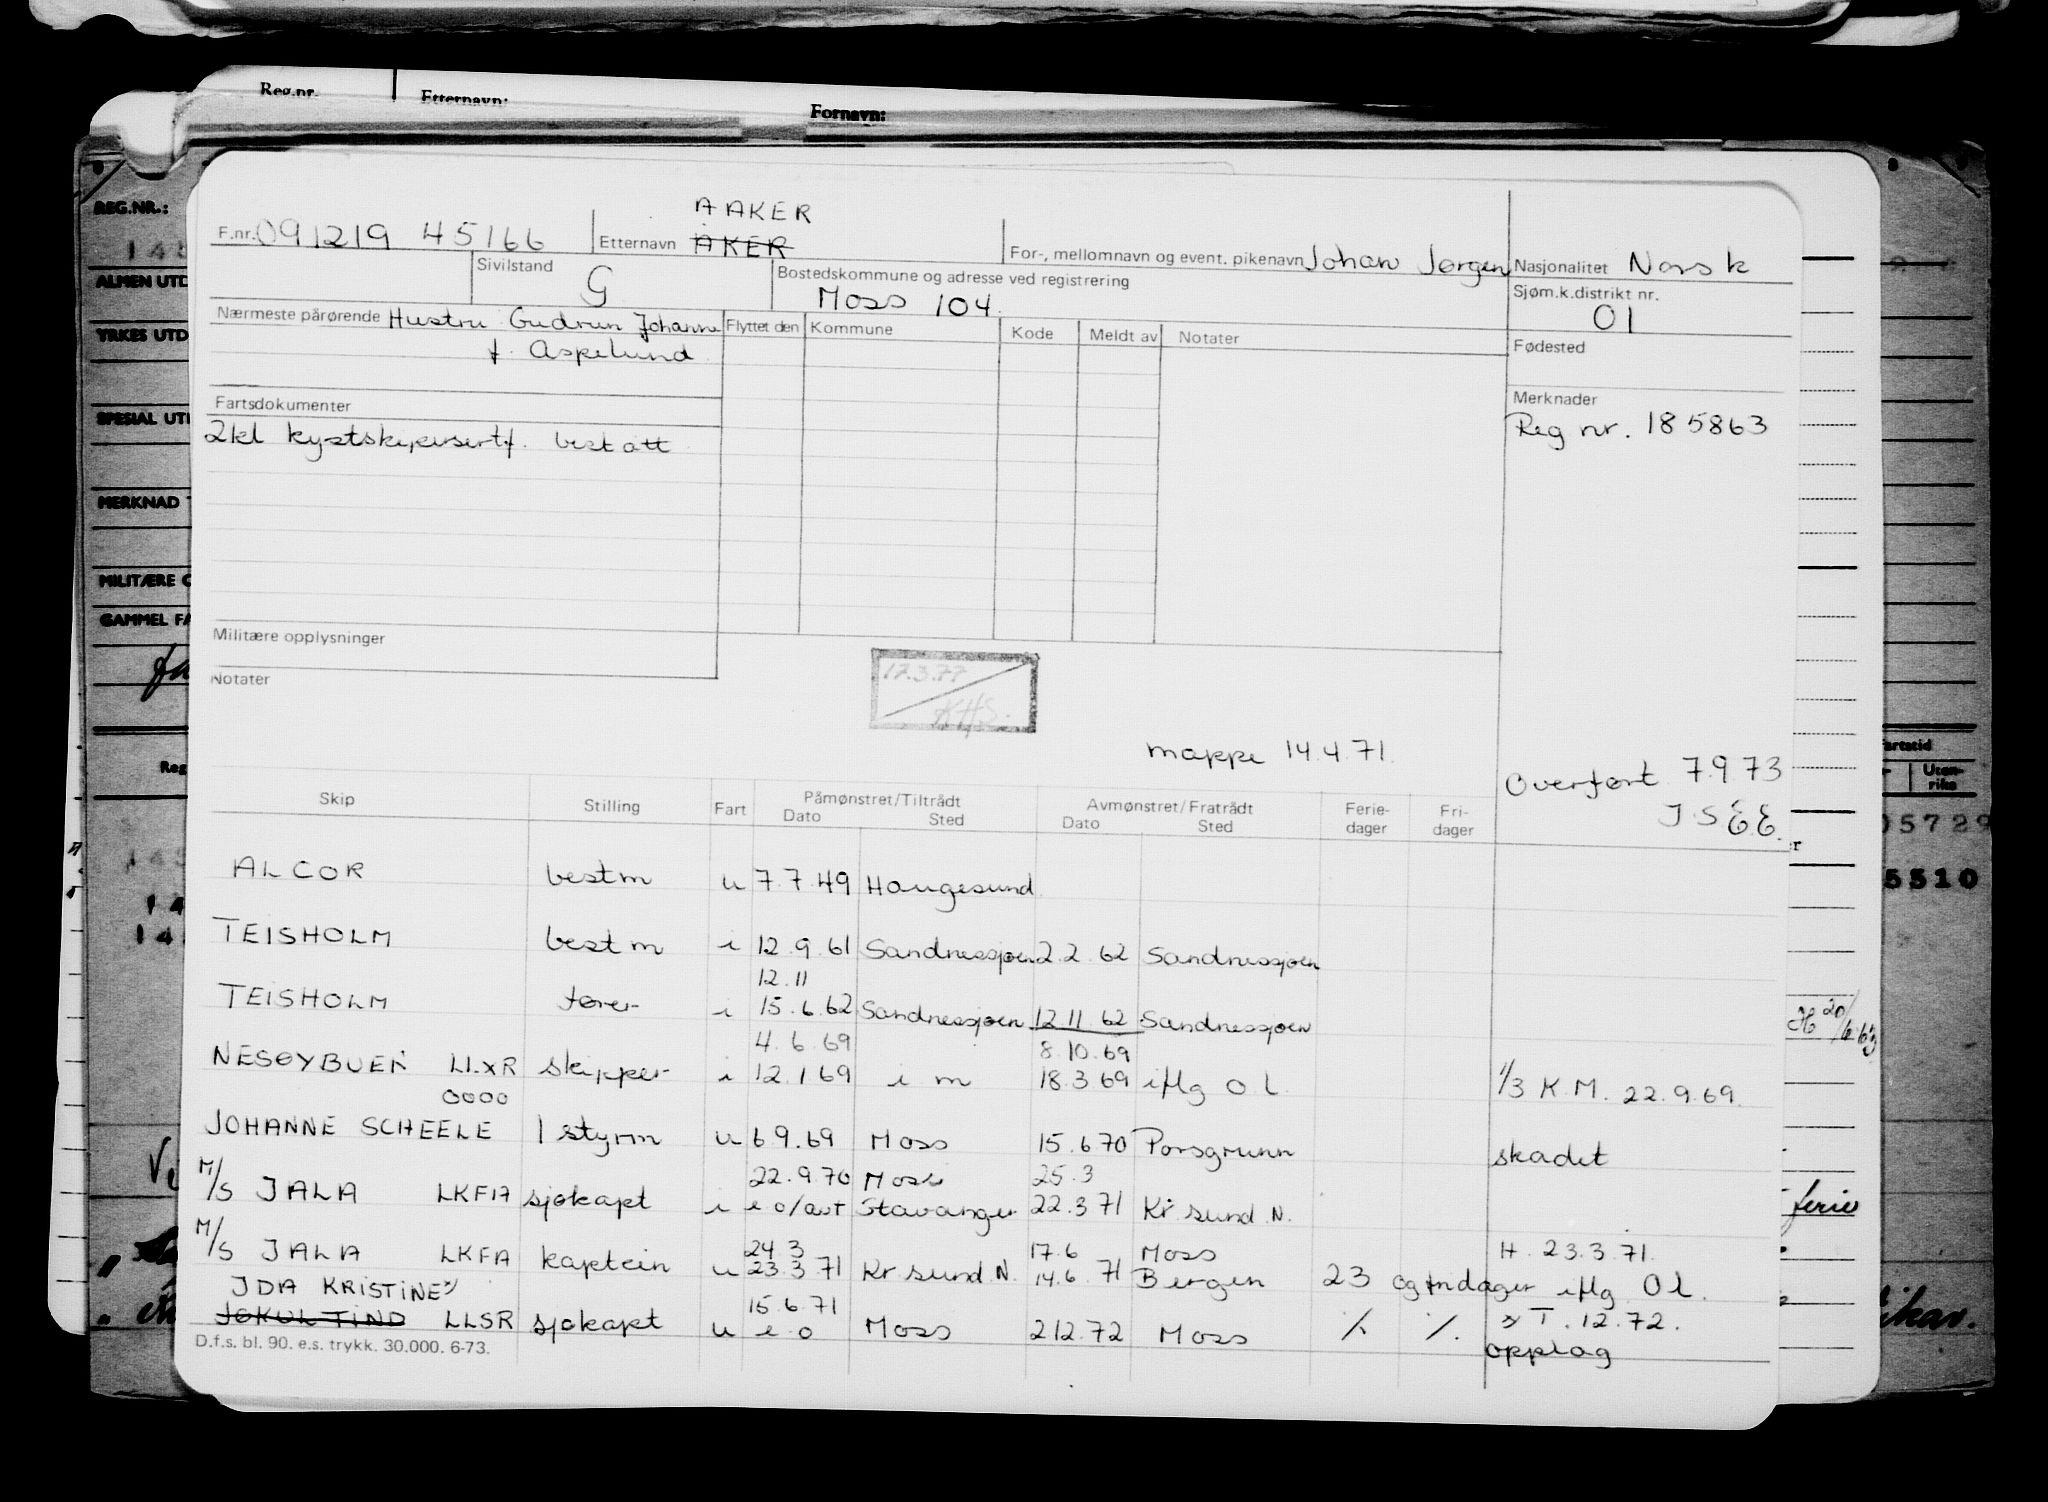 Reg.nr. Etternavn: Fornavn:
REG.NR.:
ALMEN UTD
YRKES UTD
SPESIAL UT
MERKNAD
MILITÆRE
GAMMEL FA
A AKER
F.nr. 091219 45166 Etternavn AKER For-, mellomnavn og event. pikenavn Johan Jørgen Nasjonalitet Norsk
Sivilstand G Bostedskommune og adresse ved registrering Moss 104 Sjøm.k.distrikt nr. 01
Nærmeste pårørende Hustru Gudrun Johanne Flyttet den Kommune Kode Meldt av Notater Fødested
f. Aspelund
Fartsdokumenter Merknader
2kl kystskippersertf. bestått Reg nr. 185863
Militære opplysninger
Notater
17.3.77
KHS.
mappe 14.4.71.
Overført 7.9 73
J.S E E.
Skip Stilling Fart Påmønstret/Tiltrådt Avmønstret/Fratrådt Ferie- Fri-
Dato Sted Dato Sted dager dager
ALCOR bestm u 7.7.49 Haugesund
TEISHOLM bestm i 12.9.61 Sandnessjøen 2.2.62 Sandnessjøen
12.11
TEISHOLM fører i 15.6.62 Sandnessjøen 12 11 62 Sandnessjøen
4.6.69 8.10.69
NESØYBUEN LLXR skipper i 12.1 69 i m 18.3 69 iflg O.l. 1/3 K.M. 22.9.69.
OOOO
JOHANNE SCHEELE 1 styrm u 6 9.69 Moss 15.6 70 Porsgrunn skadet
22.9.70 Moss 25.3
M/S JALA LKFA sjøkapt i e o/avt Stavanger 22.3 71 Kr.sund N.
24 3 17.6 Moss H. 23.3.71.
M/S JALA LKFA kaptein u 23.3 71 Kr sund N. 14.6.71 Bergen 23 og fridager iflg Ol.
IDA KRISTINE x) 15.6.71
JØKULTIND LLSR sjøkapt u e o Moss 212.72 Moss ./. ./. x) T. 12.72.
opplag
D.f.s. bl. 90. e.s. trykk. 30.000. 6-73.
ferie
5510